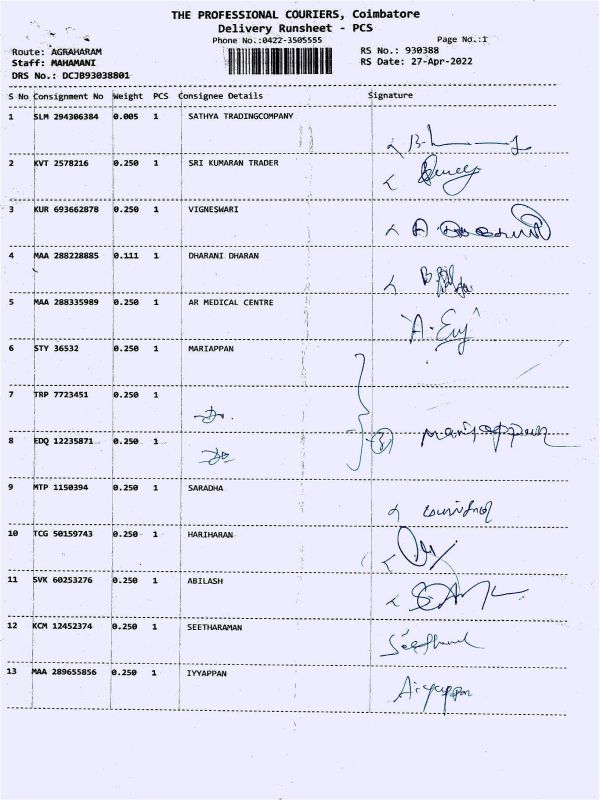 THE PROFESSIONAL COURIERS, Coimbatore
Delivery Runsheet - PCS
Phone No.:0422-3505555 Page No.:1
Route: AGRAHARAM RS No.: 930388
Staff: MAHAMANI RS Date: 27-Apr-2022
DRS No.: DCJB93038801
S No Consignment No Weight PCS Consignee Details Signature
1 SLM 294306384 0.005 1 SATHYA TRADINGCOMPANY
2 KVT 2578216 0.250 1 SRI KUMARAN TRADER
3 KUR 693662878 0.250 1 VIGNESWARI
4 MAA 288228885 0.111 1 DHARANI DHARAN
5 MAA 288335989 0.250 1 AR MEDICAL CENTRE
6 STY 36532 0.250 1 MARIAPPAN
7 TRP 7723451 0.250 1
8 EDQ 12235871 0.250 1 3 Mariyappan
9 MTP 1150394 0.250 1 SARADHA
10 TCG 50159743 0.250 1 HARIHARAN
11 SVK 60253276 0.250 1 ABILASH
12 KCM 12452374 0.250 1 SEETHARAMAN
13 MAA 289655856 0.250 1 IYYAPPAN Aiyappan